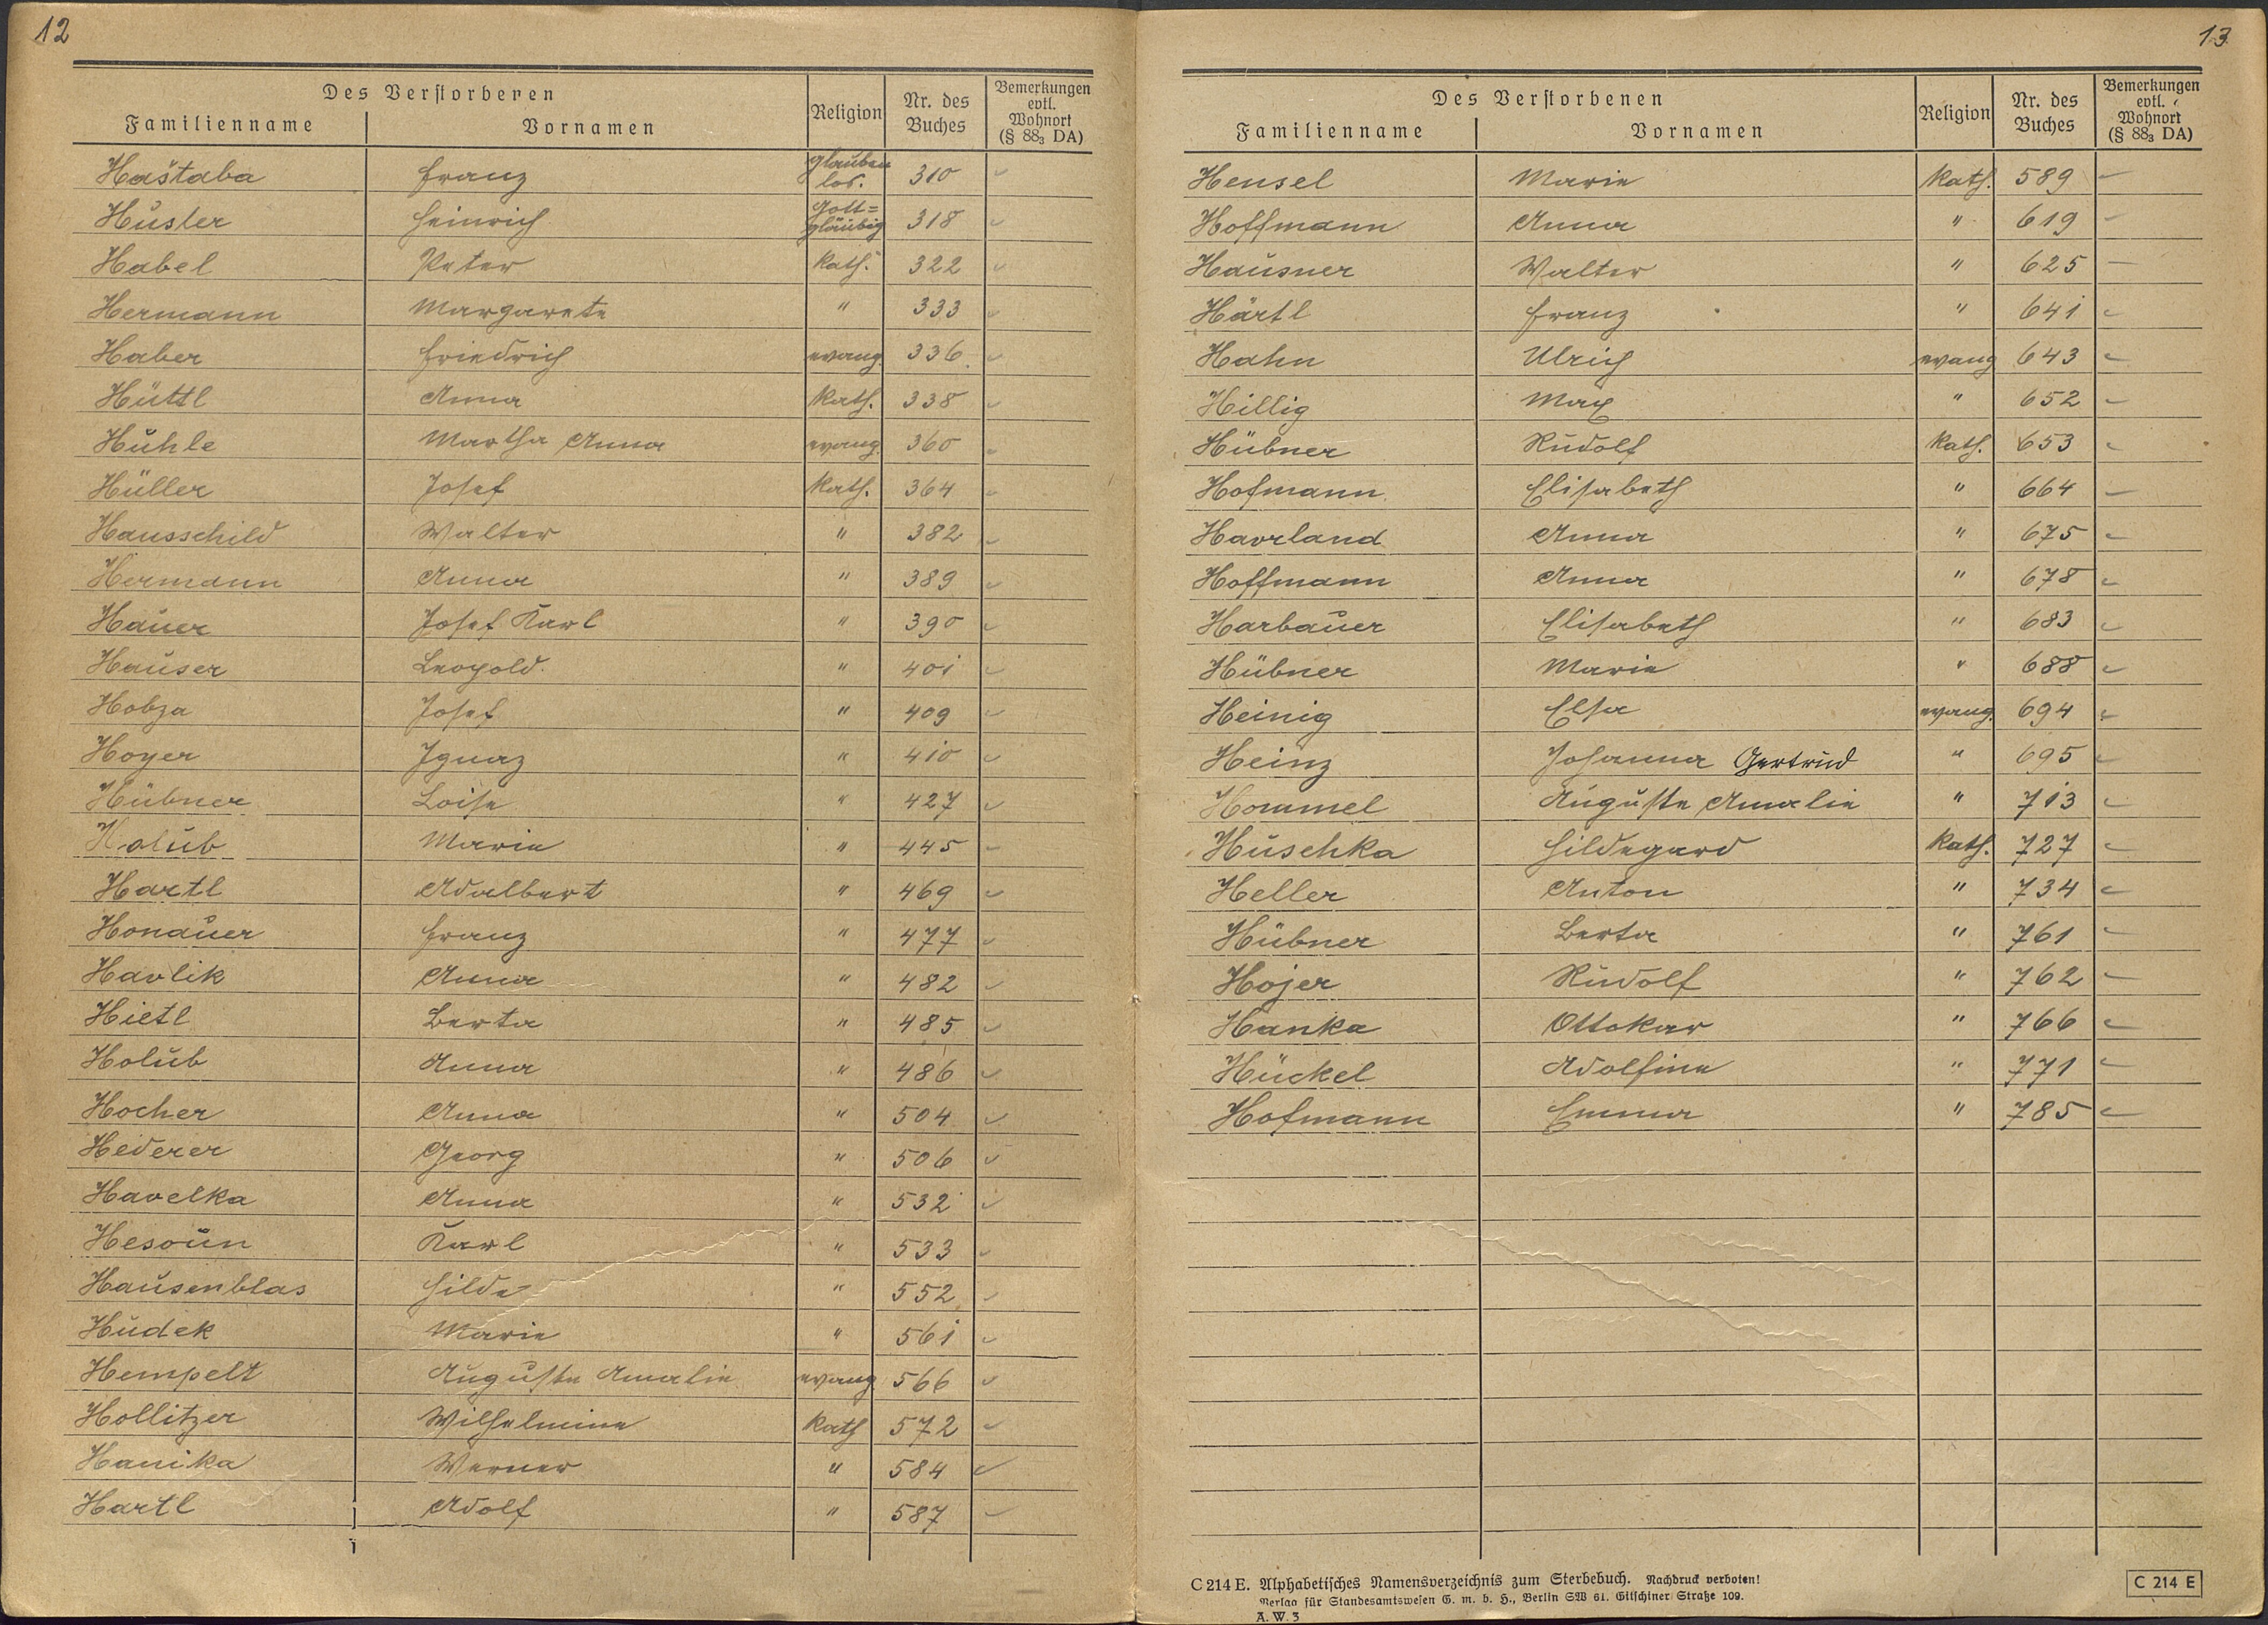 12
Des Verstorbenen
Religion
Nr. des Buches
Bemerkungen evtl. Wohnort (§ 88₃ DA)
Familienname Vornamen
Haštaba Franz glauben los. 310
Husler Heinrich Gott= gläubig 318
Habel Peter kath. 322
Hermann Margarete " 333
Haber Friedrich evang. 336
Hüttl Anna kath. 338
Huhle Martha Anna evang. 360
Hüller Josef kath. 364
Hausschild Walter " 382
Hermann Anna " 389
Hauer Josef Karl " 390
Hauser Leopold. " 401
Hobza Josef " 409
Hoyer Ignaz " 410
Hübner Loise " 427
Holub Marie " 445
Hartl Adalbert " 469
Honauer Franz " 477
Havlik Anna " 482
Hietl Berta " 485
Holub Anna " 486
Hocher Anna " 504
Hederer Georg " 506
Havelka Anna " 532
Hesoun Karl " 533
Hausenblas Hilde " 552
Hudek Marie " 561
Hempelt Auguste Amalie evang 566
Hollitzer Wilhelmine kath 572
Hanika Werner " 584
Hartl Adolf " 587
13
Des Verstorbenen
Religion
Nr. des Buches
Bemerkungen evtl. Wohnort (§ 88₃ DA)
Familienname Vornamen
Hensel Marie kath. 589
Hoffmann Anna " 619
Hausner Walter " 625
Härtl Franz " 641
Hahn Ulrich evang 643
Hillig Max " 652
Hübner Rudolf kath. 653
Hofmann Elisabeth " 664
Havrland Anna " 675
Hoffmann Anna " 678
Harbauer Elisabeth " 683
Hübner Marie " 688
Heinig Elsa evang. 694
Heinz Johanna Gertrud " 695
Hommel Auguste Amalie " 713
Huschka Hildegard kath. 727
Heller Anton " 734
Hübner Berta " 761
Hojer Rudolf " 762
Hanka Ottokar " 766
Hückel Adolfine " 771
Hofmann Emma " 785
C 214 E. Alphabetisches Namensverzeichnis zum Sterbebuch. Nachdruck verboten!
Verlag für Standesamtswesen G. m. b. H., Berlin SW 61. Gitschiner Straße 109.
A. W. 3
C 214 E